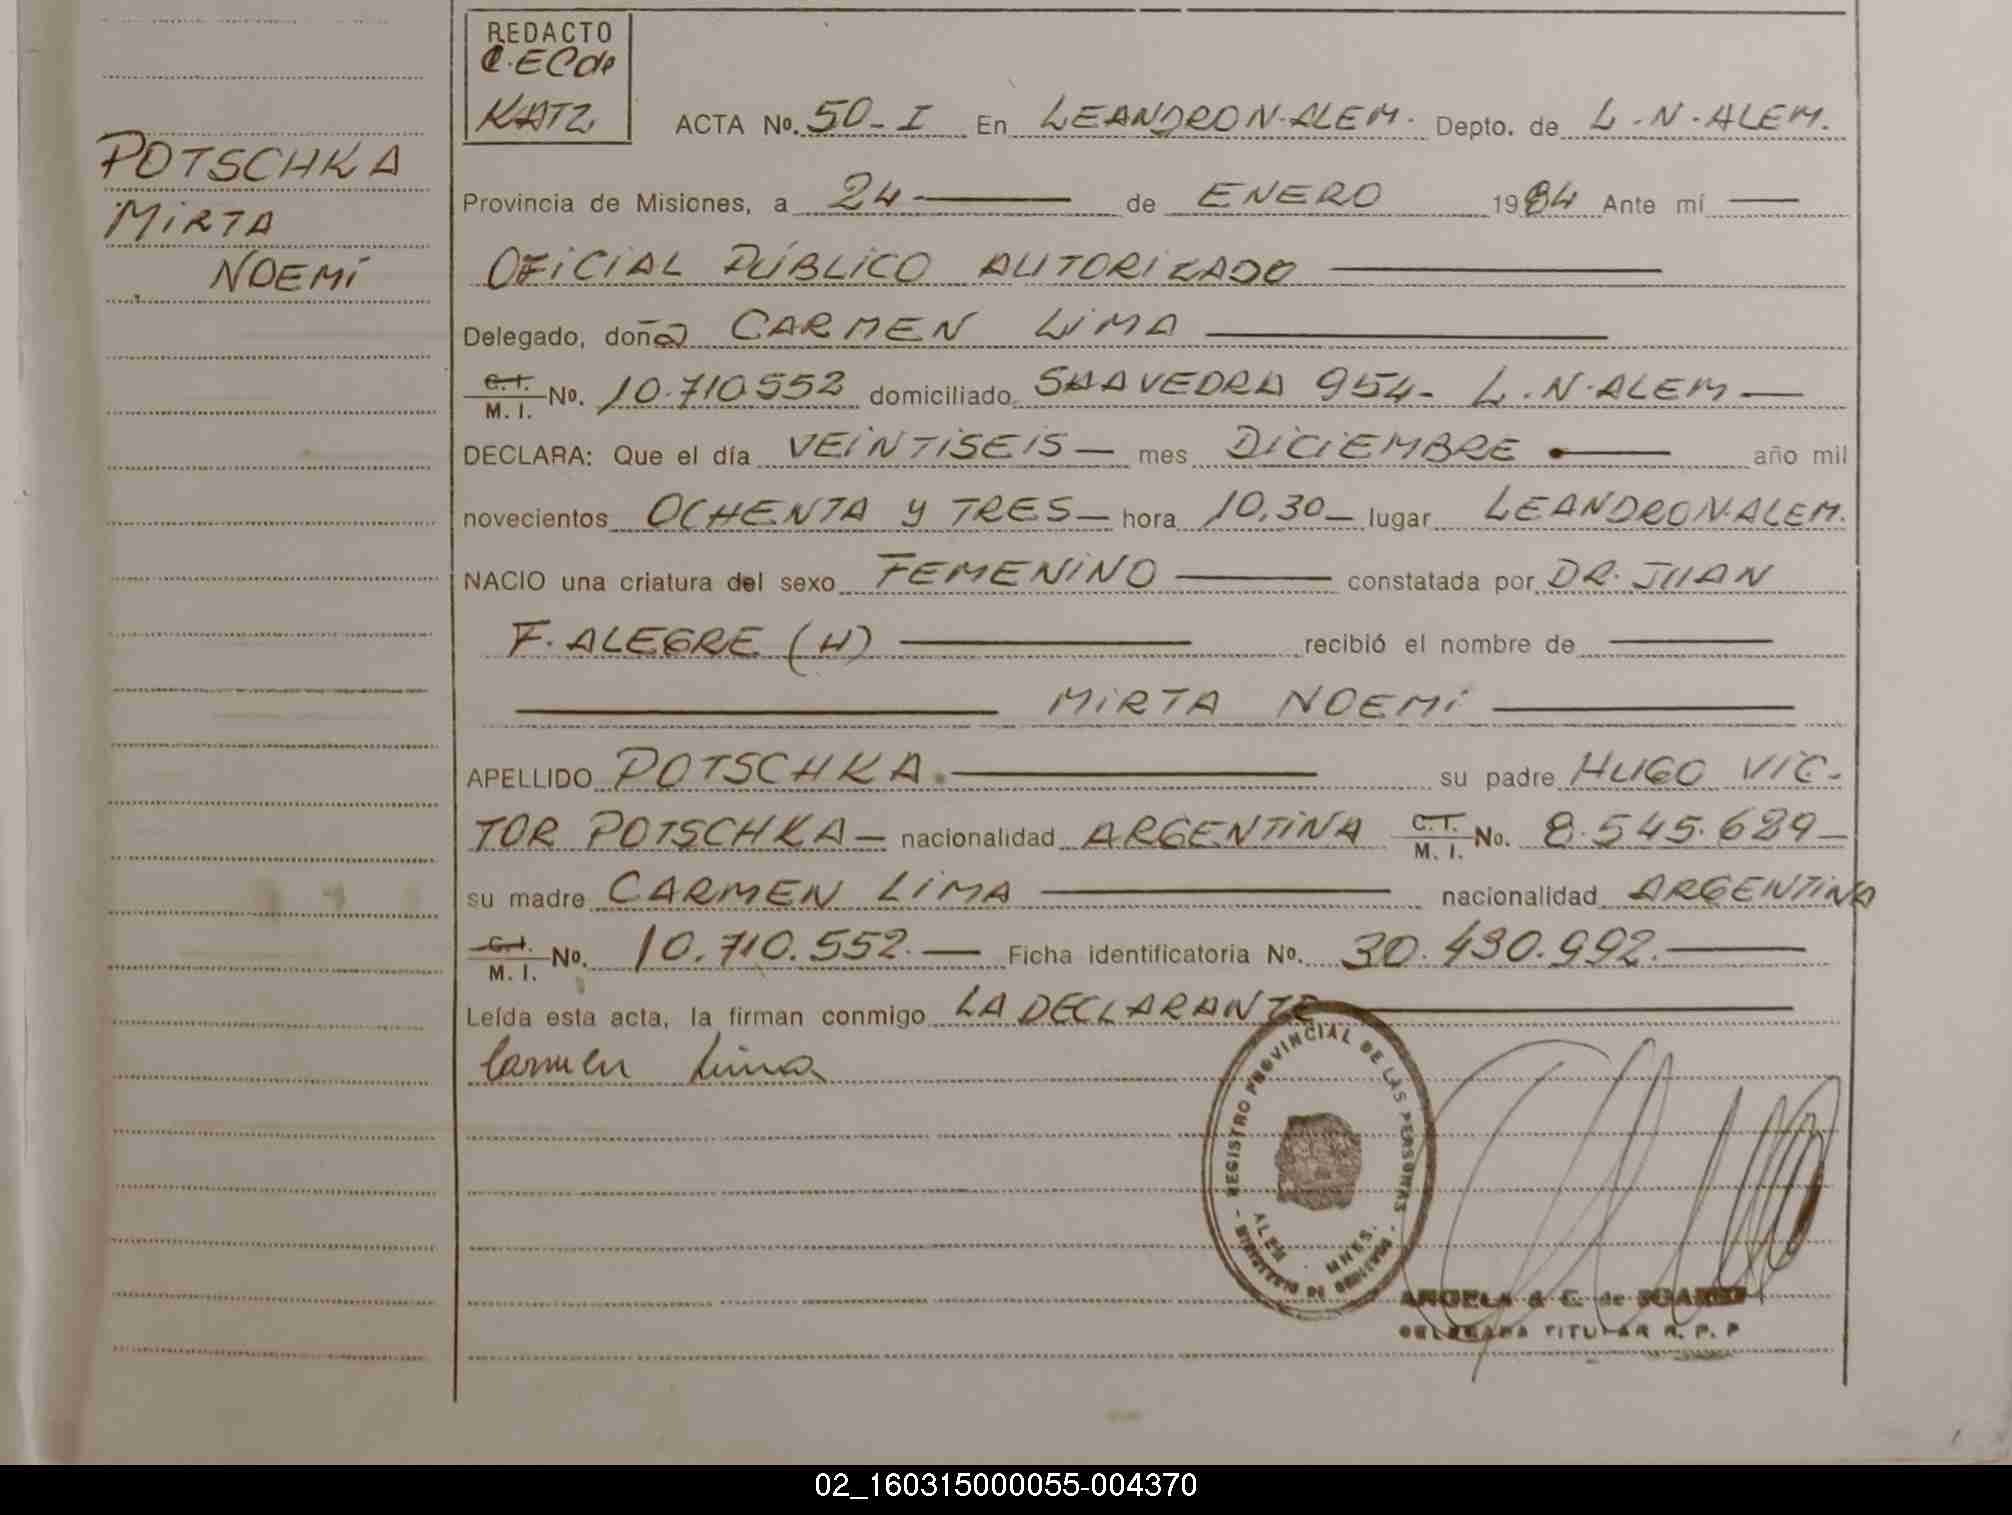 REDACTO
C.EC de
KATZ
POTSCHKA
MIRTA
NOEMÍ
ACTA No. 50-I En LEANDRO N. ALEM. Depto. de L.N.ALEM.
Provincia de Misiones, a 24 de ENERO 1984 Ante mí
OFICIAL PÚBLICO AUTORIZADO
Delegado, doña CARMEN LIMA
C.I. M. I. No. 10.710.552 domiciliado SAAVEDRA 954- L.N.ALEM
DECLARA: Que el día VEINTISEIS mes DICIEMBRE año mil
novecientos OCHENTA y TRES hora 10,30 lugar LEANDRO N. ALEM.
NACIO una criatura del sexo FEMENINO constatada por DR. JUAN
F. ALEGRE (H) recibió el nombre de
MIRTA NOEMÍ
APELLIDO POTSCHKA. su padre HUGO VIC-
TOR POTSCHKA nacionalidad ARGENTINA C.I. M. I. No. 8.545.689
su madre CARMEN LIMA nacionalidad ARGENTINA
C.I. M. I. No. 10.710.552. Ficha identificatoria No. 30.430.992.
Leída esta acta, la firman conmigo LA DECLARANTE
Carmen Lima
REGISTRO PROVINCIAL DE LAS PERSONAS
ALEM MNES.
MINISTERIO DE GOBIERNO
ANGELA de SUAREZ
DELEGADA TITULAR R. P. P
02_160315000055-004370